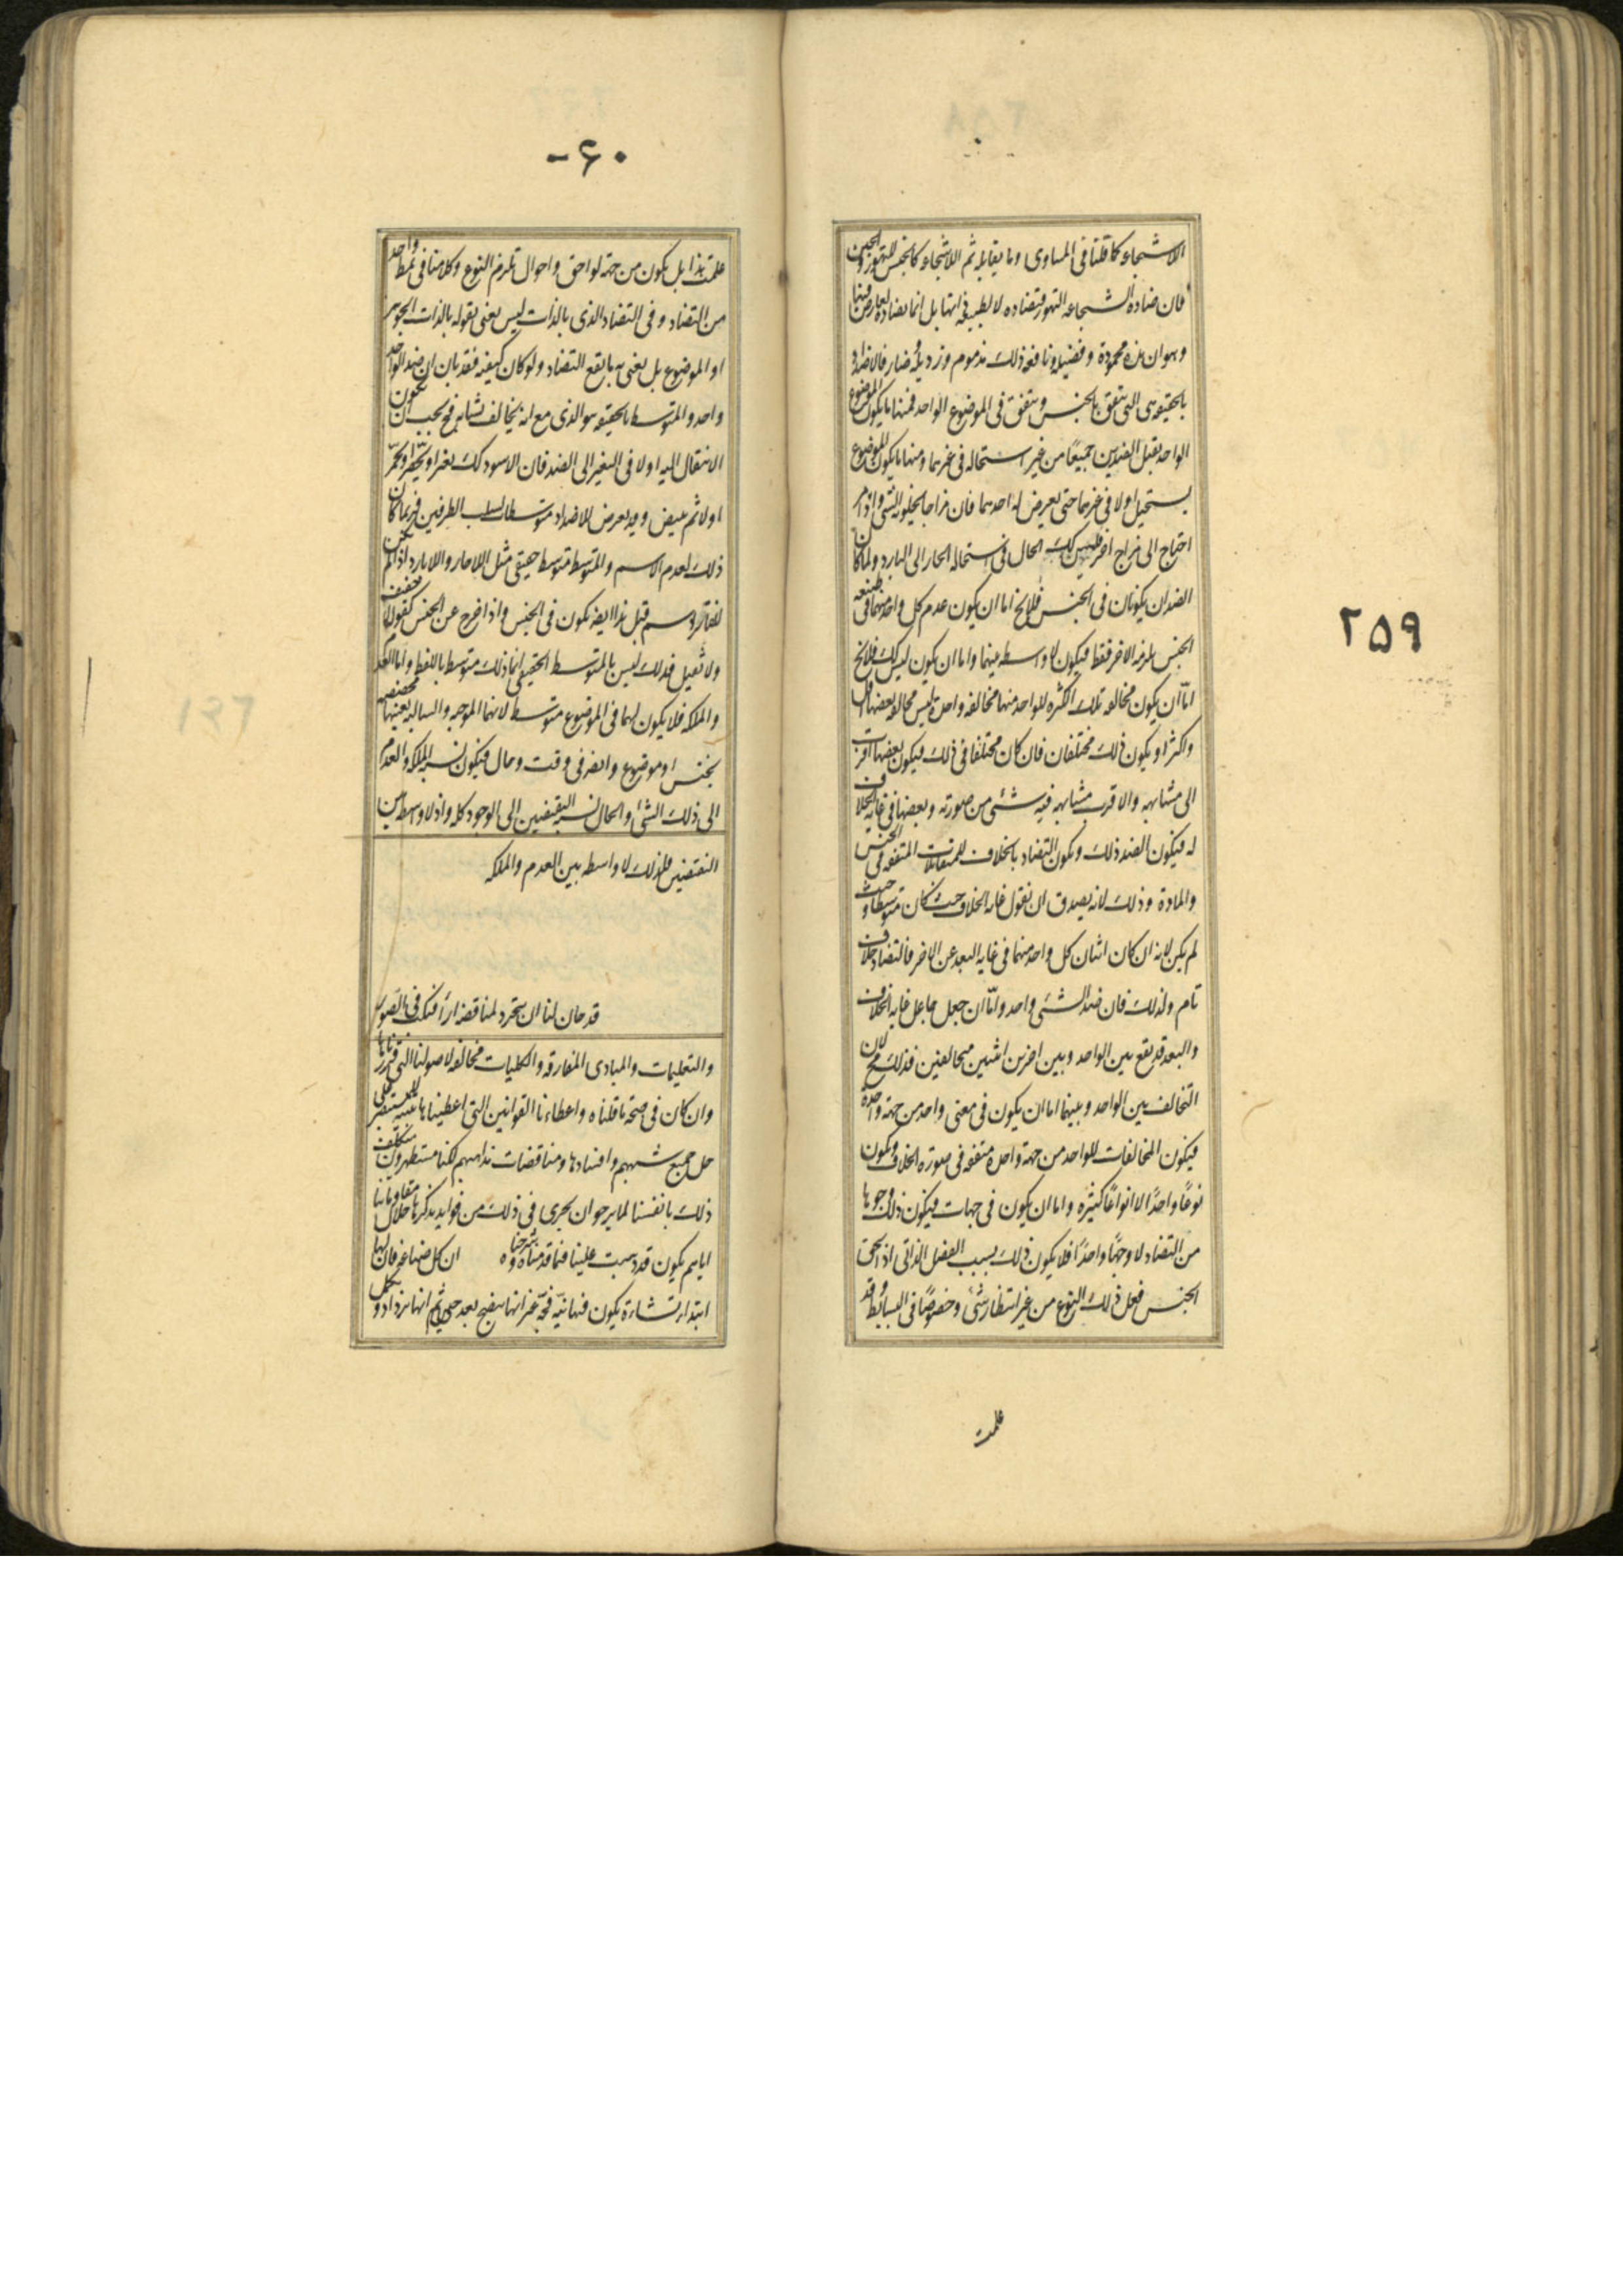 ۲۵۹
اللاشجاعه كما قلنا فى المساوى وما يقابله ثم اللاشجاعه كالجنس للتهور والجبن
فان مضادة الشجاعه التهور فتضاده لا لطبيعه ذاتها بل انما تضاده لعارض فيها
وهو ان هذه محمودة وفضيله ونافعه وذلك مذموم ورذيله وضار فالاضداد
بالحقيقه هى التى تتفق بالجنس وتتفق فى الموضوع الواحد فمنها ما يكون الموضوع
الواحد يقبل الضدين جميعًا من غير استحاله فى غيرهما ومنها ما يكون الموضوع
يستحيل اولا فى غيرهما حتى يعرض له احدهما فان مزاجا يحليه الشى واذا مر
احتاج الى مزاج اخر وليس كك الحال فى استحاله الحار الى البارد ولما كان
الضدان يكونان فى الجنس فلا يخ اما ان يكون عدم كل واحد منهما فى طبيعه
الجنس يلزمه الاخر فقط فيكون لا واسطه بينهما واما ان يكون ليس كك فلا يخ
امّا ان يكون مخالفه تلك الكثره للواحد منها مخالفه واحدة ليس مخالفه بعضها اقل
واكثر او يكون ذلك مختلفان فان كان مختلفا فى ذلك فيكون بعضها اقرب
الى مشابهه والاقرب مشابهه فيه شئ من صورته وبعضها فى غايه الخلاف
له فيكون الضد ذلك ويكون التضاد بالخلاف للمتقابلات المتفقه فى الجنس
والمادة وذلك لانه يصدق ان نقول غايه الخلاف حيث كان متوسطا وحيث
لم يكن لانه ان كان اثنان كل واحد منهما فى غايه البعد عن الاخر فالتضاد خلاف
تام ولذلك فان ضد الشئ واحد وامّا ان جعل جاعل غايه الخلاف
والبعد قد يقع بين الواحد وبين اخرين اثنين متخالفين فذلك مح لان
التخالف بين الواحد وبينهما اما ان يكون فى معنى واحد من جهة واحدة
فيكون المخالفات للواحد من جهة واحدة متفقه فى صورة الخلاف ويكون
نوعًا واحدًا لا انواعًا كثيره واما ان يكون فى جهات فيكون ذلك وجوها
من التضاد لا وجهًا واحدًا فلا يكون ذلك بسبب الفصل الذاتى اذ الحق
الجنس فعل ذلك النوع من غير انتظار شئ وخصوصًا فى البسائط وقد
علمت
۶۰-
علمت هذا بل يكون من جهة لواحق واحوال تلزم النوع وكلامنا فى نمط واحد
من التضاد وفى التضاد الذى بالذات ليس يعنى بقوله بالذات الجوهر
او الموضوع بل يعنى به ما يقع التضاد ولو كان كيفيه فقد بان ان ضد الواحد
واحد والمتوسط بالحقيقه هو الذى مع انه يخالف يشابه فح يجب ان يكون
الانتقال اليه اولا فى التغير الى الضد فان الاسود كك يغبر او يخضر او يحمر
اولا ثم يبيض وقد يعرض للاضداد متوسطات بسلب الطرفين فربما كان
ذلك لعدم الاسم والمتوسط متوسط حقيقى مثل اللاحار واللابارد اذا لم يكن
للفاتر اسم قبل هذا ايضه يكون فى الجنس واذا خرج عن الجنس كقولك لا خفيف
ولا ثقيل فذلك ليس بالمتوسط الحقيقى انما ذلك متوسط باللفظ واما العدم
والملكه فلا يكون لهما فى الموضوع متوسط لانهما الموجبه والسالبه بعينها مخصصه
بجنس او موضوع وايضه فى وقت وحال فيكون نسبه الملكه والعدم
الى ذلك الشئ والحال نسبه النقيضين الى الوجود كله واذ لا واسطه بين
النقيضين فلذلك لا واسطه بين العدم والملكه
قد حان لنا ان نتجرد لمناقضه اراء قيلت فى الصور
والتعليمات والمبادى المفارقه والكليات مخالفه لاصولنا التى قررناها
وان كان فى صحة ما قلناه واعطاءنا القوانين التى اعطيناها تنبيه للمستبصر على
حل جميع شبههم وافسادها ومناقضات مذاهبهم لكنا مستظهرون بتكلف
ذلك بانفسنا لما نرجو ان يجرى فى ذلك من فوايد نذكرها خلال مقاومتنا
اياهم يكون قد ذهبت علينا فيما قدمناه وشرحناه ان كل صناعه فان لها
ابتداء نشاءة يكون فيها نيّه فجّه غير انها تنضج بعد حين ثم انها تزداد وتكمل